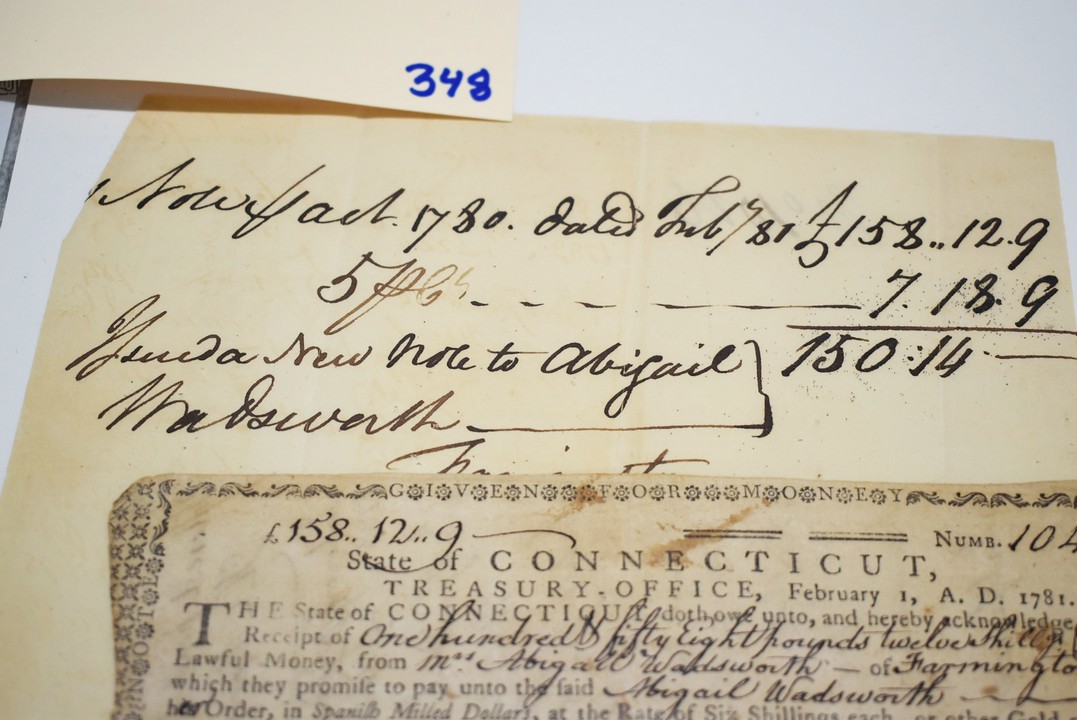 348
Note Jact. 1780. dated Feb'y 81 £158.. 12. 9
5 7. 18. 9
Issued a New Note to Abigail 150:14
Wadsworth
G·I·V·E·N F·O·R M·O·N·E·Y
£158.. 12.. 9 NUMB. 104
State of CONNECTICUT,
TREASURY-OFFICE, February 1, A. D. 1781.
THE State of CONNECTICUT doth owe unto, and hereby acknowledge
Receipt of One hundred & fifty Eight pounds twelve Shillgs
Lawful Money, from Mrs Abigail Wadsworth of Farmingto
which they promise to pay unto the said Abigail Wadsworth
her Order, in Spanish Milled Dollars, at the Rate of Six Shillings each
NOTE